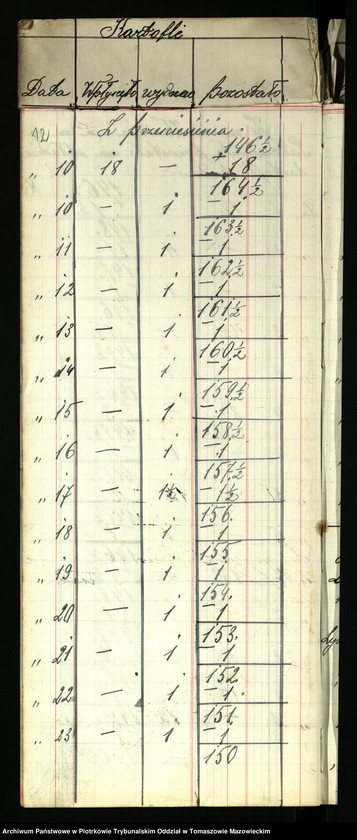 Kartofli
Data Wpłynęło wydano Pozostało
12 Z przeniesienia 146½
„ 10 18 — + 18
164½
„ 10 — 1 — 1
163½
„ 11 — 1 — 1
162½
„ 12 — 1 — 1
161½
„ 13 — 1 — 1
160½
„ 14 — 1 — 1
159½
„ 15 — 1 — 1
158½
„ 16 — 1 — 1
157½
„ 17 — 1½ — 1½
156.
„ 18 — 1 — 1
155
„ 19 — 1 — 1
154.
„ 20 — 1 — 1
153.
„ 21 — 1 — 1
152
„ 22 — 1 — 1.
151.
„ 23 — 1 — 1
150
Archiwum Państwowe w Piotrkowie Trybunalskim Oddział w Tomaszowie Mazowieckim